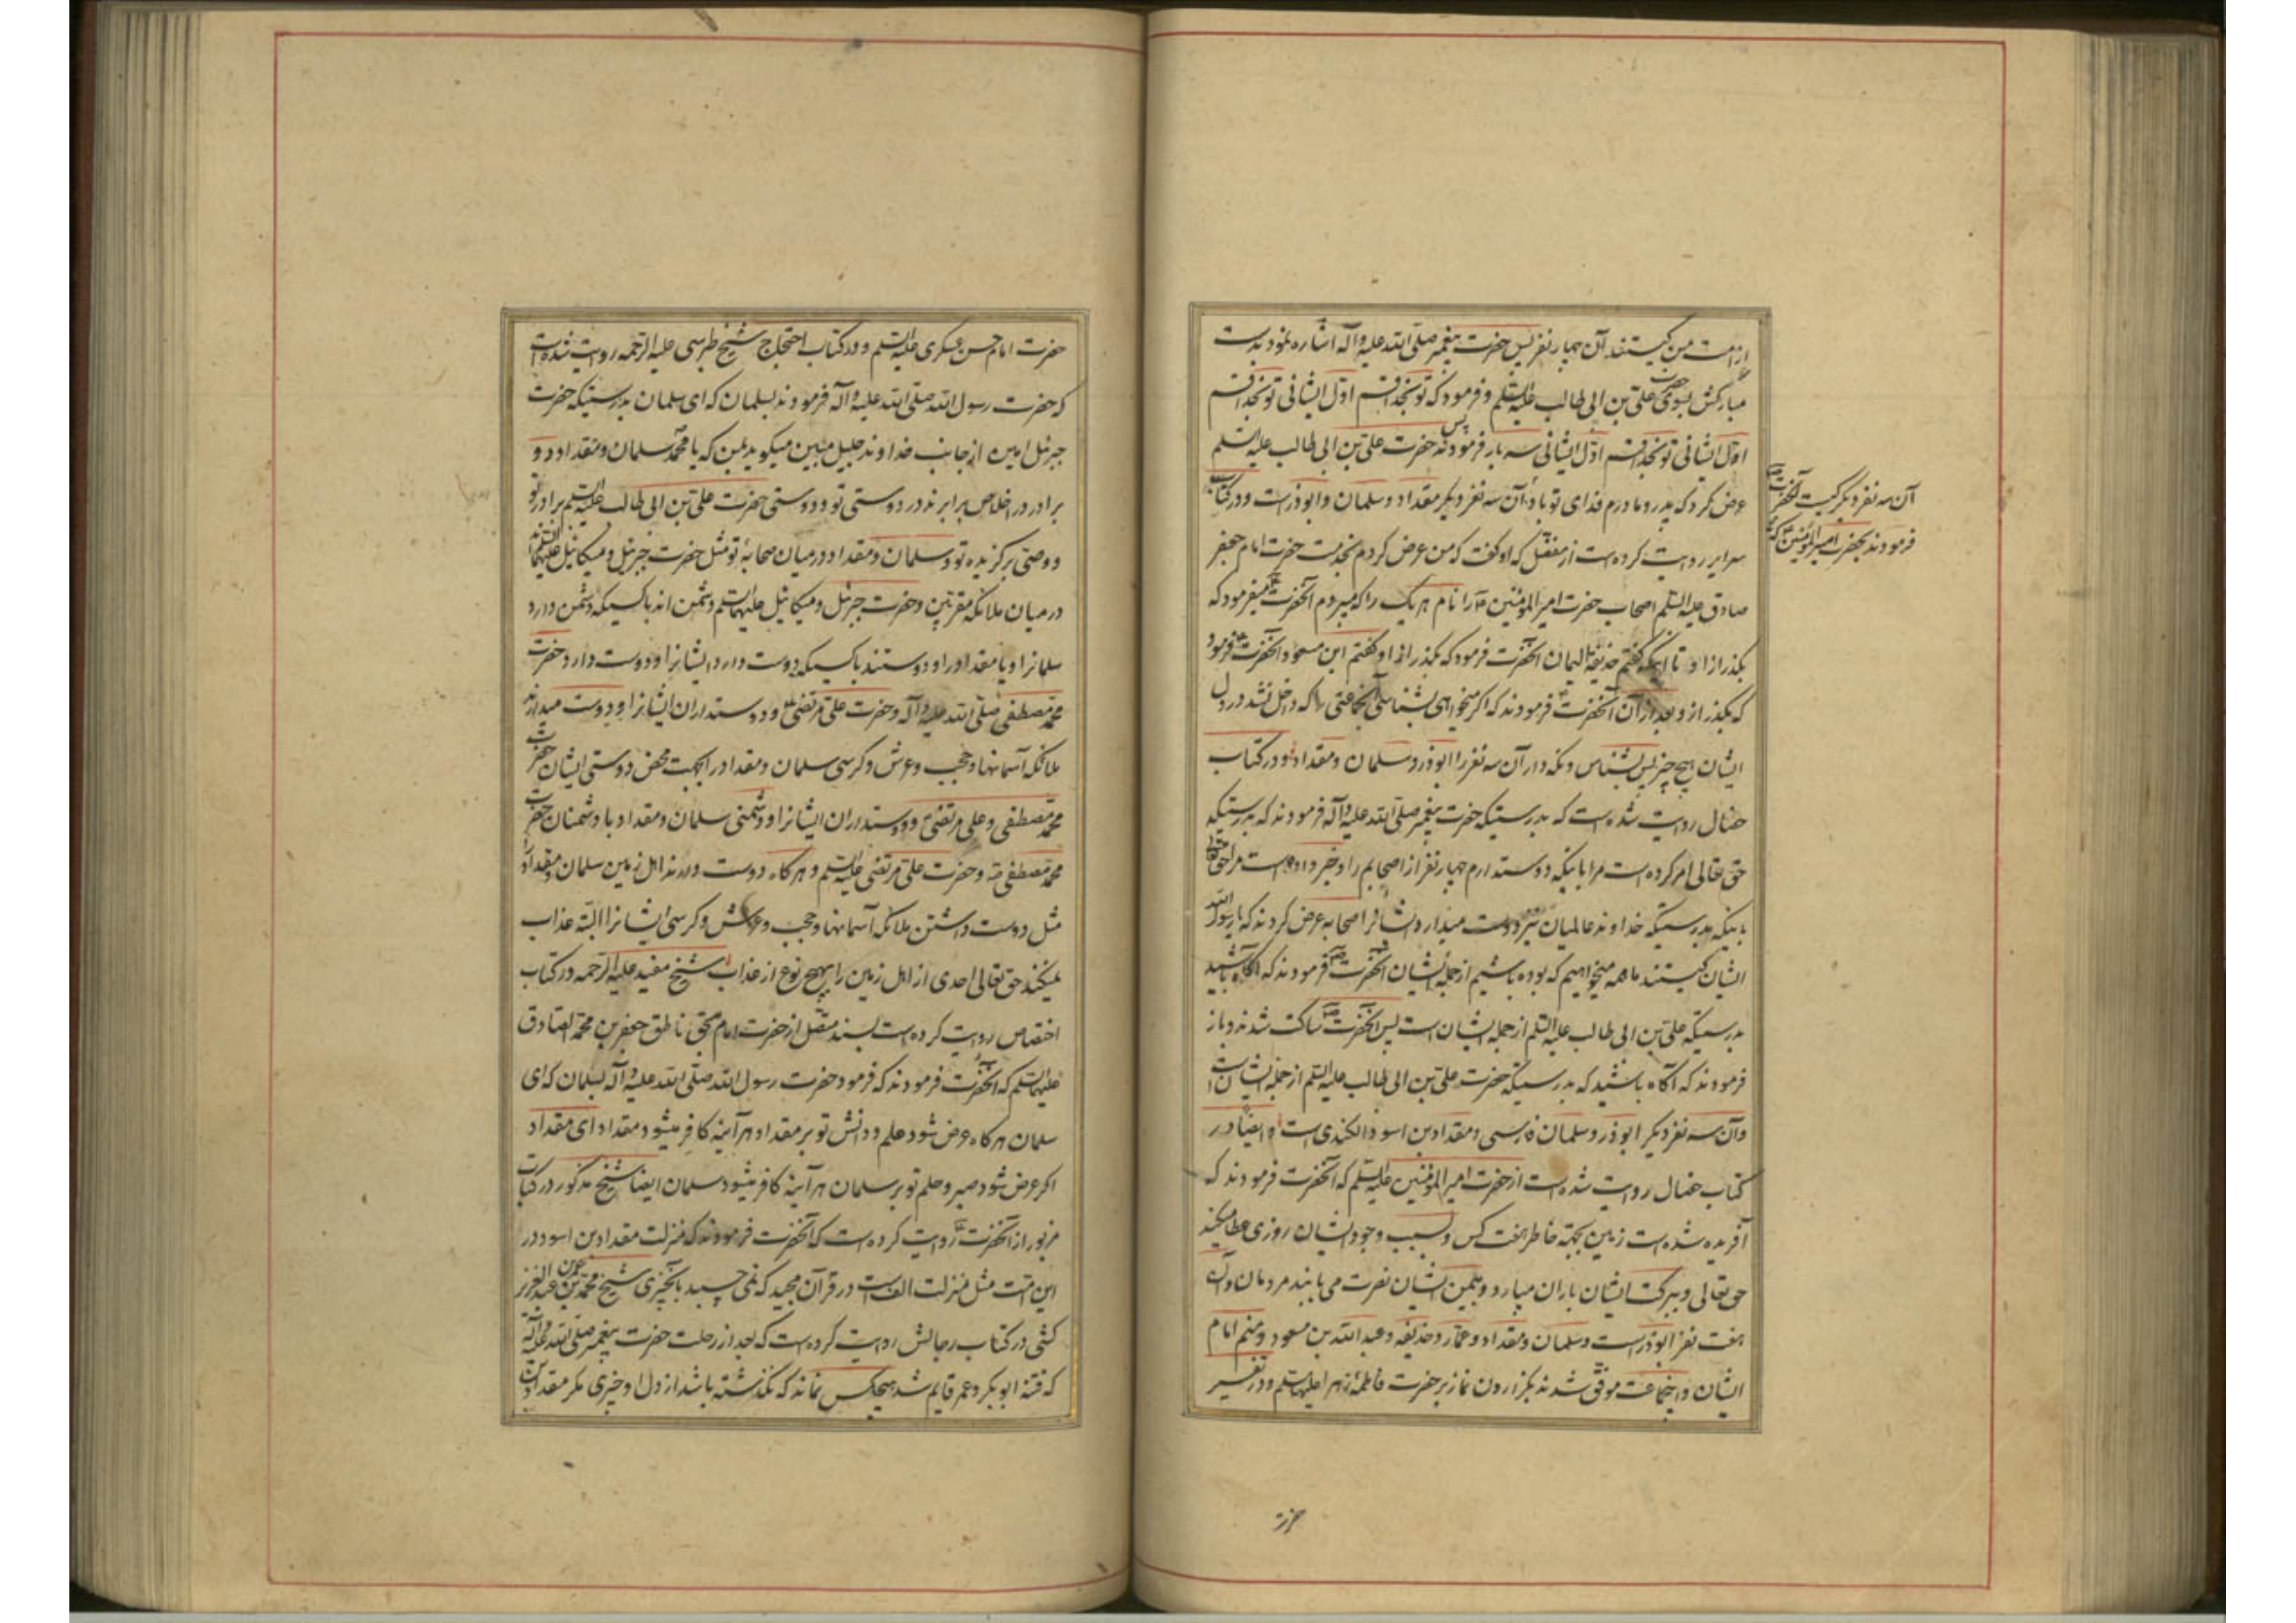 از امت من کیستند آن چهار نفر پس حضرت پیغمبر صلی الله علیه و آله اشاره نمود بدست
مبارکش بسوی حضرت علی بن ابی طالب علیه السلم و فرمود که تو بخدا قسم اول ایشانی تو بخدا قسم
اول ایشانی تو بخدا قسم اول ایشانی سه بار فرمودند پس حضرت علی بن ابی طالب علیه السلم
عرض کرد که پدر و مادرم فدای تو باد آن سه نفر دیگر مقداد و سلمان و ابوذرست و در کتاب
سرایر روایت کرده است از مفضل که او گفت که من عرض کردم بخدمت حضرت امام جعفر
صادق علیه السلم اصحاب حضرت امیر المؤمنین را نام هر یک را که میبردم آنحضرت میفرمود که
بگذر از او تا اینکه گفتم حذیفة الیمان آنحضرت فرمود که بگذر از او گفتم ابن مسعود آنحضرت فرمود
که بگذر از و بعد از آن آنحضرت فرمودند که اگر میخواهی بشناسی آنجماعتی را که داخل نشد در دل
ایشان هیچ چیز پس بشناس و نگه دار آن سه نفر را ابوذر و سلمان و مقداد و در کتاب
خصال روایت شده است که بدرستیکه حضرت پیغمبر صلی الله علیه و آله فرمودند که بدرستیکه
حق تعالی امر کرده است مرا باینکه دوست دارم چهار نفر از اصحابم را و خبر داده است مرا حق تعالی
باینکه بدرستیکه خداوند عالمیان نیز دوست میدارد ایشانرا اصحابه عرض کردند که یا رسول الله
ایشان کیستند ما همه میخواهیم که بوده باشیم از جمله ایشان آنحضرت فرمودند که آگاه باشید
بدرستیکه علی بن ابی طالب علیه السلم از جمله ایشان است پس آنحضرت ساکت شدند و باز
فرمودند که آگاه باشید که بدرستیکه حضرت علی بن ابی طالب علیه السلم از جمله ایشان است
و آن سه نفر دیگر ابوذر و سلمان فارسی و مقداد بن اسود الکندی است و ایضا در
کتاب خصال روایت شده است از حضرت امیر المؤمنین علیه السلم که آنحضرت فرمودند که
آفریده شده است زمین بجهة خاطر هفت کس و بسبب وجود ایشان روزی عطا میکند
حق تعالی و ببرکت ایشان باران میبارد و بیمن ایشان نصرت می یابند مردمان و آن
هفت نفر ابوذرست و سلمان و مقداد و عمار و حذیفه و عبد الله بن مسعود و منم امام
ایشان و اینجماعت موفق شدند بگزاردن نماز بر حضرت فاطمه زهرا علیها السلم و در تفسیر
آن سه نفر دیگر کیست آنحضرت
فرمودند بحضرت امیر المؤمنین که
حضرت
حضرت امام حسن عسکری علیه السلم و در کتاب احتجاج شیخ طبرسی علیه الرحمه روایت شده است
که حضرت رسول الله صلی الله علیه و آله فرمودند بسلمان که ای سلمان بدرستیکه حضرت
جبرئیل امین از جانب خداوند جلیل مبین میگوید بمن که یا محمد سلمان و مقداد دو
برادر در اخلاص برابرند در دوستی تو و دوستی حضرت علی بن ابی طالب علیه السلم برادر تو
و وصی برگزیده تو و سلمان و مقداد در میان صحابهٔ تو مثل حضرت جبرئیل و میکائیل علیهما السلم اند
در میان ملائکه مقربین و حضرت جبرئیل و میکائیل علیهما السلم دشمن اند با کسیکه دشمن دارد
سلمانرا و یا مقداد را و دوستند با کسیکه دوست دارد ایشانرا و دوست دارد حضرت
محمد مصطفی صلی الله علیه و آله و حضرت علی مرتضی و دوستداران ایشانرا و دوست میدارند
ملائکه آسمانها و حجب و عرش و کرسی سلمان و مقداد را بجهت محض دوستی ایشان حضرت
محمد مصطفی و علی مرتضی و دوستداران ایشانرا و دشمنی سلمان و مقداد با دشمنان حضرت
محمد مصطفی و حضرت علی مرتضی علیه السلم و هر گاه دوست دارند اهل زمین سلمان و مقداد را
مثل دوست داشتن ملائکه آسمانها و حجب و عرش و کرسی ایشانرا البته عذاب
نمیکند حق تعالی احدی از اهل زمین را بهیچ نوع از عذاب شیخ مفید علیه الرحمه در کتاب
اختصاص روایت کرده است بسند متصل از حضرت امام بحق ناطق جعفر بن محمد الصادق
علیهما السلم که آنحضرت فرمودند که فرمود حضرت رسول الله صلی الله علیه و آله بسلمان که ای
سلمان هر گاه عرض شود علم و دانش تو بر مقداد هر آینه کافر میشود مقداد ای مقداد
اگر عرض شود صبر و حلم تو بر سلمان هر آینه کافر میشود سلمان ایضا شیخ مذکور در کتاب
مزبور از آنحضرت روایت کرده است که آنحضرت فرمودند که منزلت مقداد بن اسود در
این امت مثل منزلت الف است در قرآن مجید که نمی چسبد بآنچیزی شیخ محمد بن عمر بن عبد العزیز
کشی در کتاب رجالش روایت کرده است که بعد از رحلت حضرت پیغمبر صلی الله علیه و آله
که فتنه ابوبکر و عمر قایم شد هیچکس نماند که نگذشته باشد از دل او چیزی مگر مقداد بن